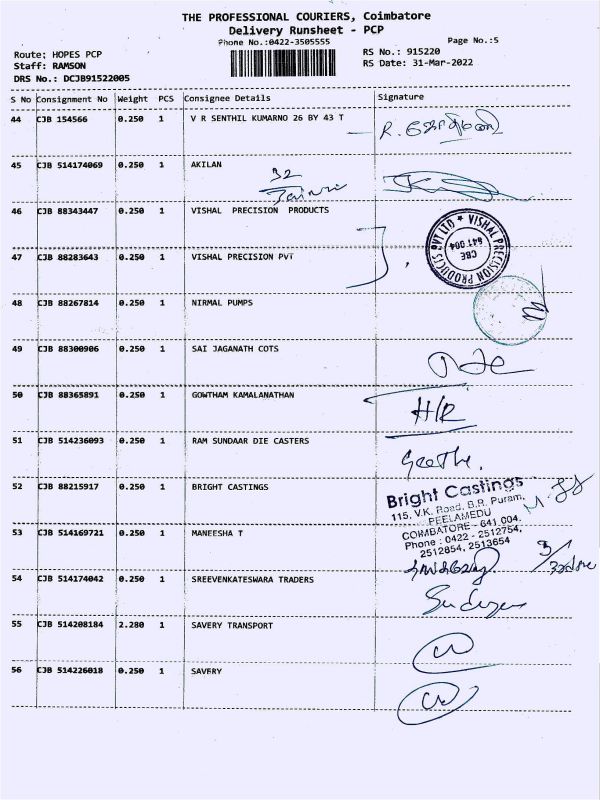 THE PROFESSIONAL COURIERS, Coimbatore
Delivery Runsheet - PCP
Phone No.:0422-3505555
Page No.:5
Route: HOPES PCP
RS No.: 915220
Staff: RAMSON
RS Date: 31-Mar-2022
DRS No.: DCJB91522005
S No Consignment No Weight PCS Consignee Details Signature
44 CJB 154566 0.250 1 V R SENTHIL KUMARNO 26 BY 43 T
45 CJB 514174069 0.250 1 AKILAN
32
46 CJB 88343447 0.250 1 VISHAL PRECISION PRODUCTS
VISHAL PRECISION PRODUCTS PVT LTD
CBE
641 004
47 CJB 88283643 0.250 1 VISHAL PRECISION PVT
48 CJB 88267814 0.250 1 NIRMAL PUMPS
49 CJB 88300906 0.250 1 SAI JAGANATH COTS
50 CJB 88365891 0.250 1 GOWTHAM KAMALANATHAN
H/R
51 CJB 514236093 0.250 1 RAM SUNDAAR DIE CASTERS
Geetha.
52 CJB 88215917 0.250 1 BRIGHT CASTINGS
Bright Castings
115, V.K. Road, B.R. Puram,
PEELAMEDU
COIMBATORE - 641 004.
Phone : 0422 - 2512754,
2512854, 2513654
53 CJB 514169721 0.250 1 MANEESHA T
54 CJB 514174042 0.250 1 SREEVENKATESWARA TRADERS
55 CJB 514208184 2.280 1 SAVERY TRANSPORT
56 CJB 514226018 0.250 1 SAVERY